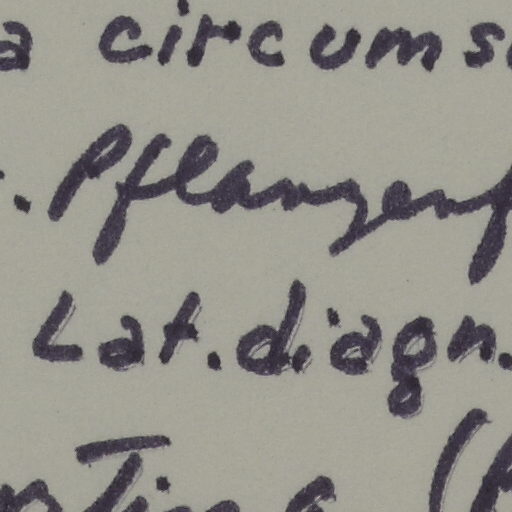 a circums
. Pflanzenf
Lat. diagn.